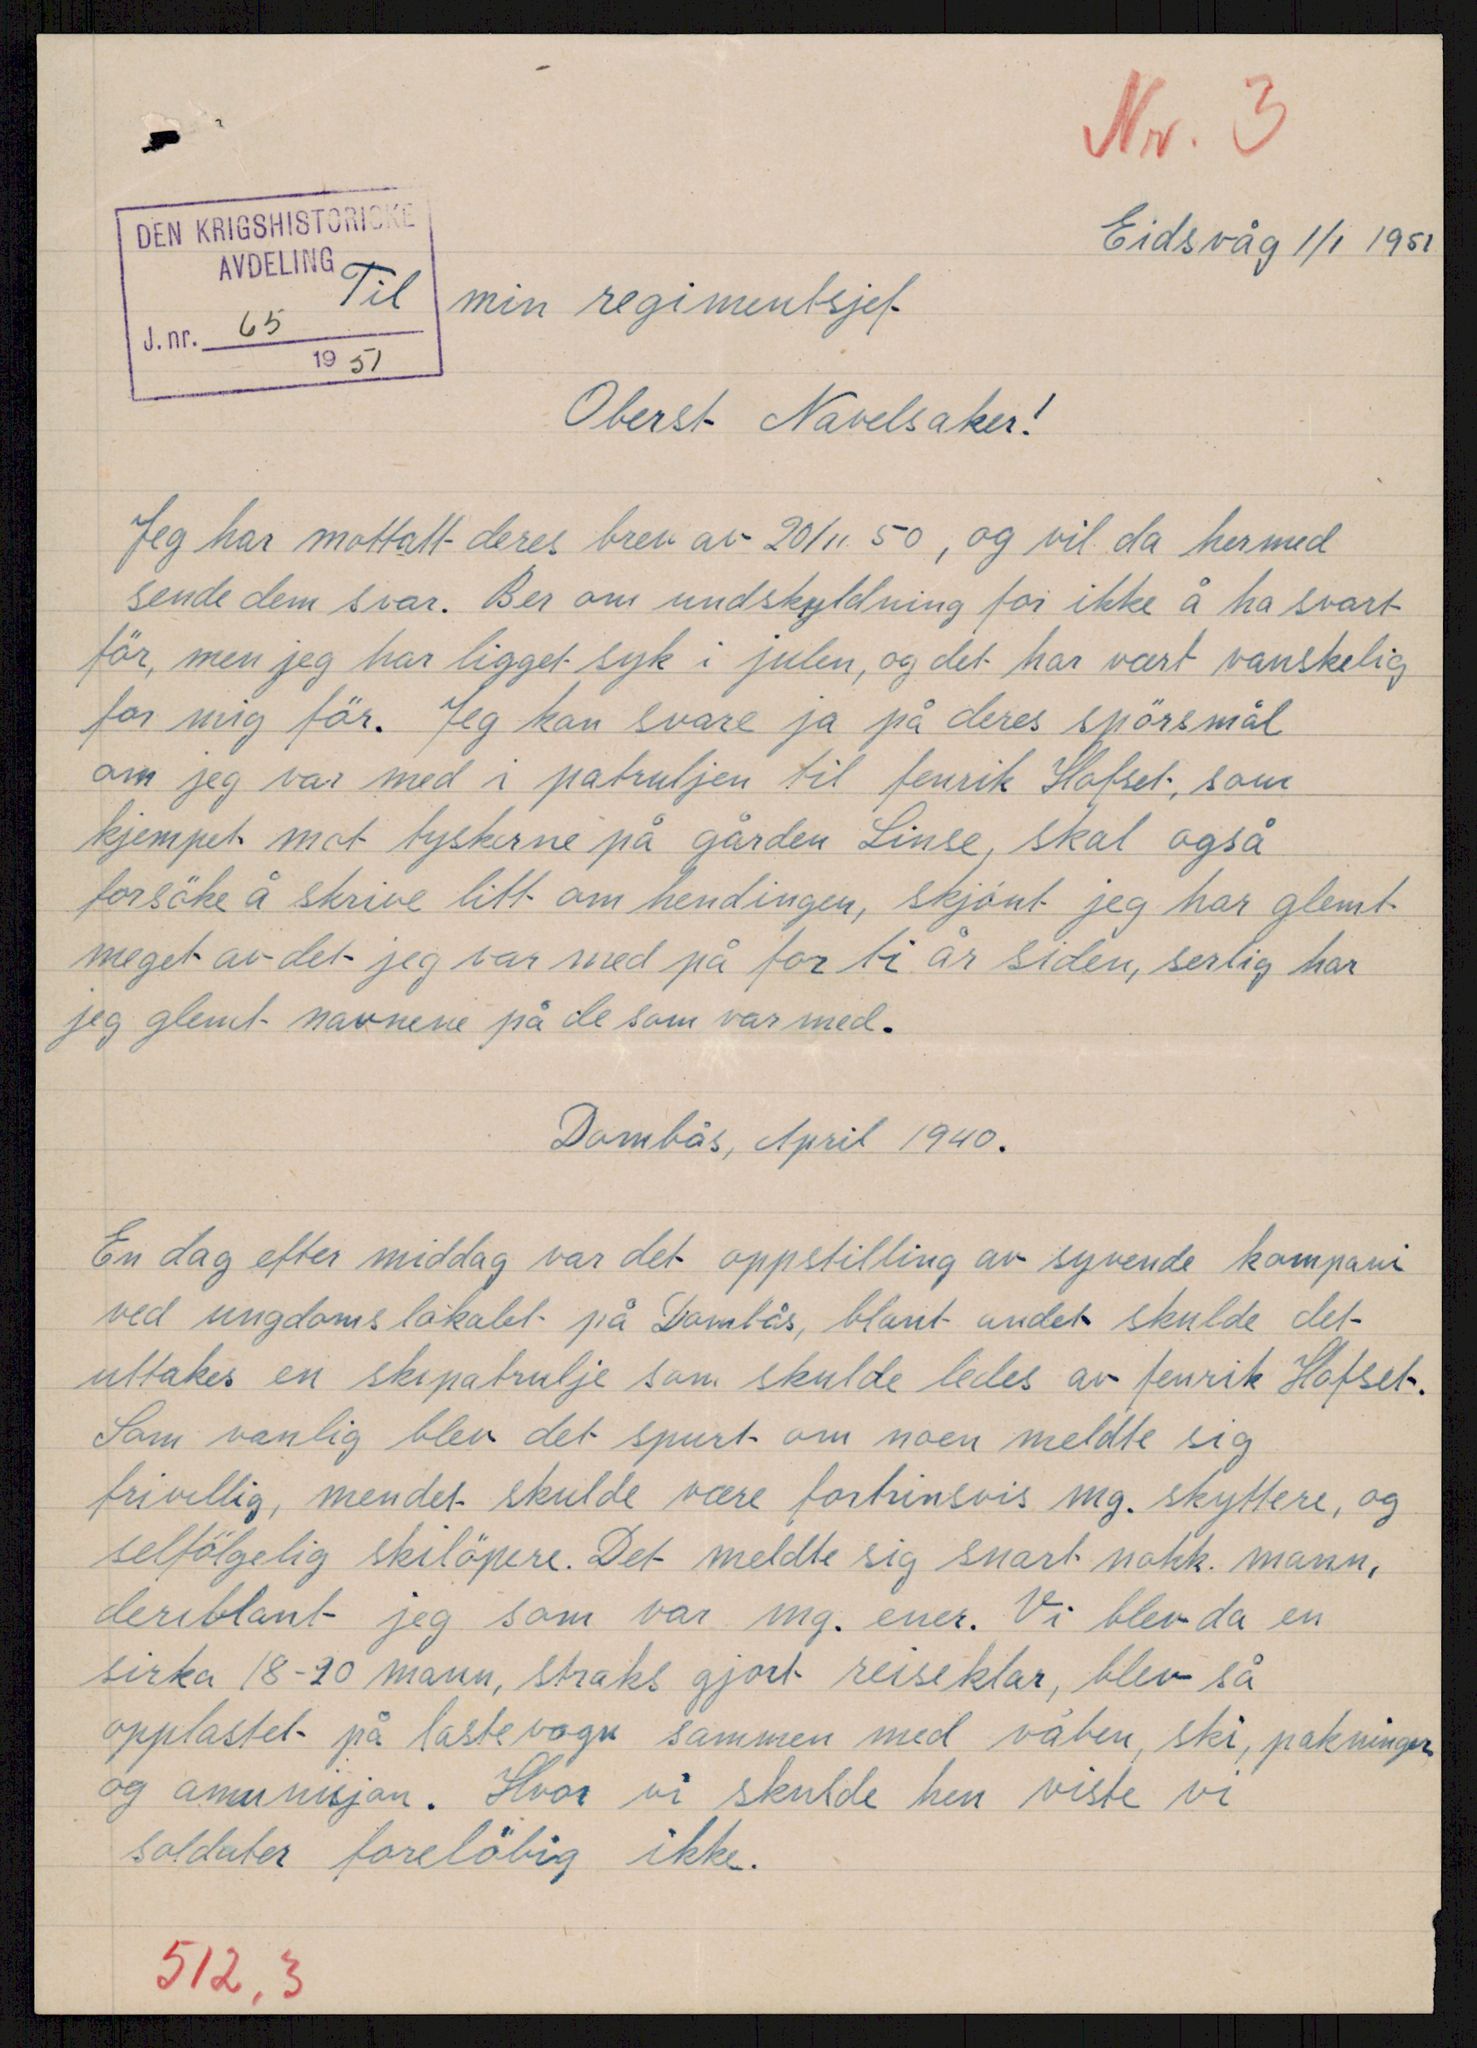 Nr. 3
DEN KRIGSHISTORISKE
AVDELING
J. nr. 65
19 51
Eidsvåg 1/1 1951
Til min regimentsjef
Oberst Navelsaker!
Jeg har mottatt deres brev av 20/11 50, og vil da hermed
sende dem svar. Ber om undskyldning for ikke å ha svart
för, men jeg har ligget syk i julen, og det har vært vanskelig
for mig för. Jeg kan svare ja på deres spörsmål
om jeg var med i patruljen til fenrik Hofset, som
kjempet mot tyskerne på gården Linse, skal også
forsöke å skrive litt om hendingen, skjönt jeg har glemt
meget av det jeg var med på for ti år siden, serlig har
jeg glemt navnene på de som var med.
Dombås, April 1940.
En dag efter middag var det oppstilling av syvende kompani
ved ungdomslokalet på Dombås, blant andet skulde det
uttakes en skipatrulje som skulde ledes av fenrik Hofset.
Som vanlig blev det spurt om noen meldte sig
frivellig, men det skulde være fortrinsvis mg. skyttere, og
selfölgelig skilöpere. Det meldte sig snart nokk. mann,
deriblant jeg som var mg. ener. Vi blev da en
sirka 18-20 mann, straks gjort reiseklar, blev så
opplastet på lastevogn sammen med våben, ski, pakninger
og amunisjon. Hvor vi skulde hen viste vi
soldater forelöbig ikke.
512,3